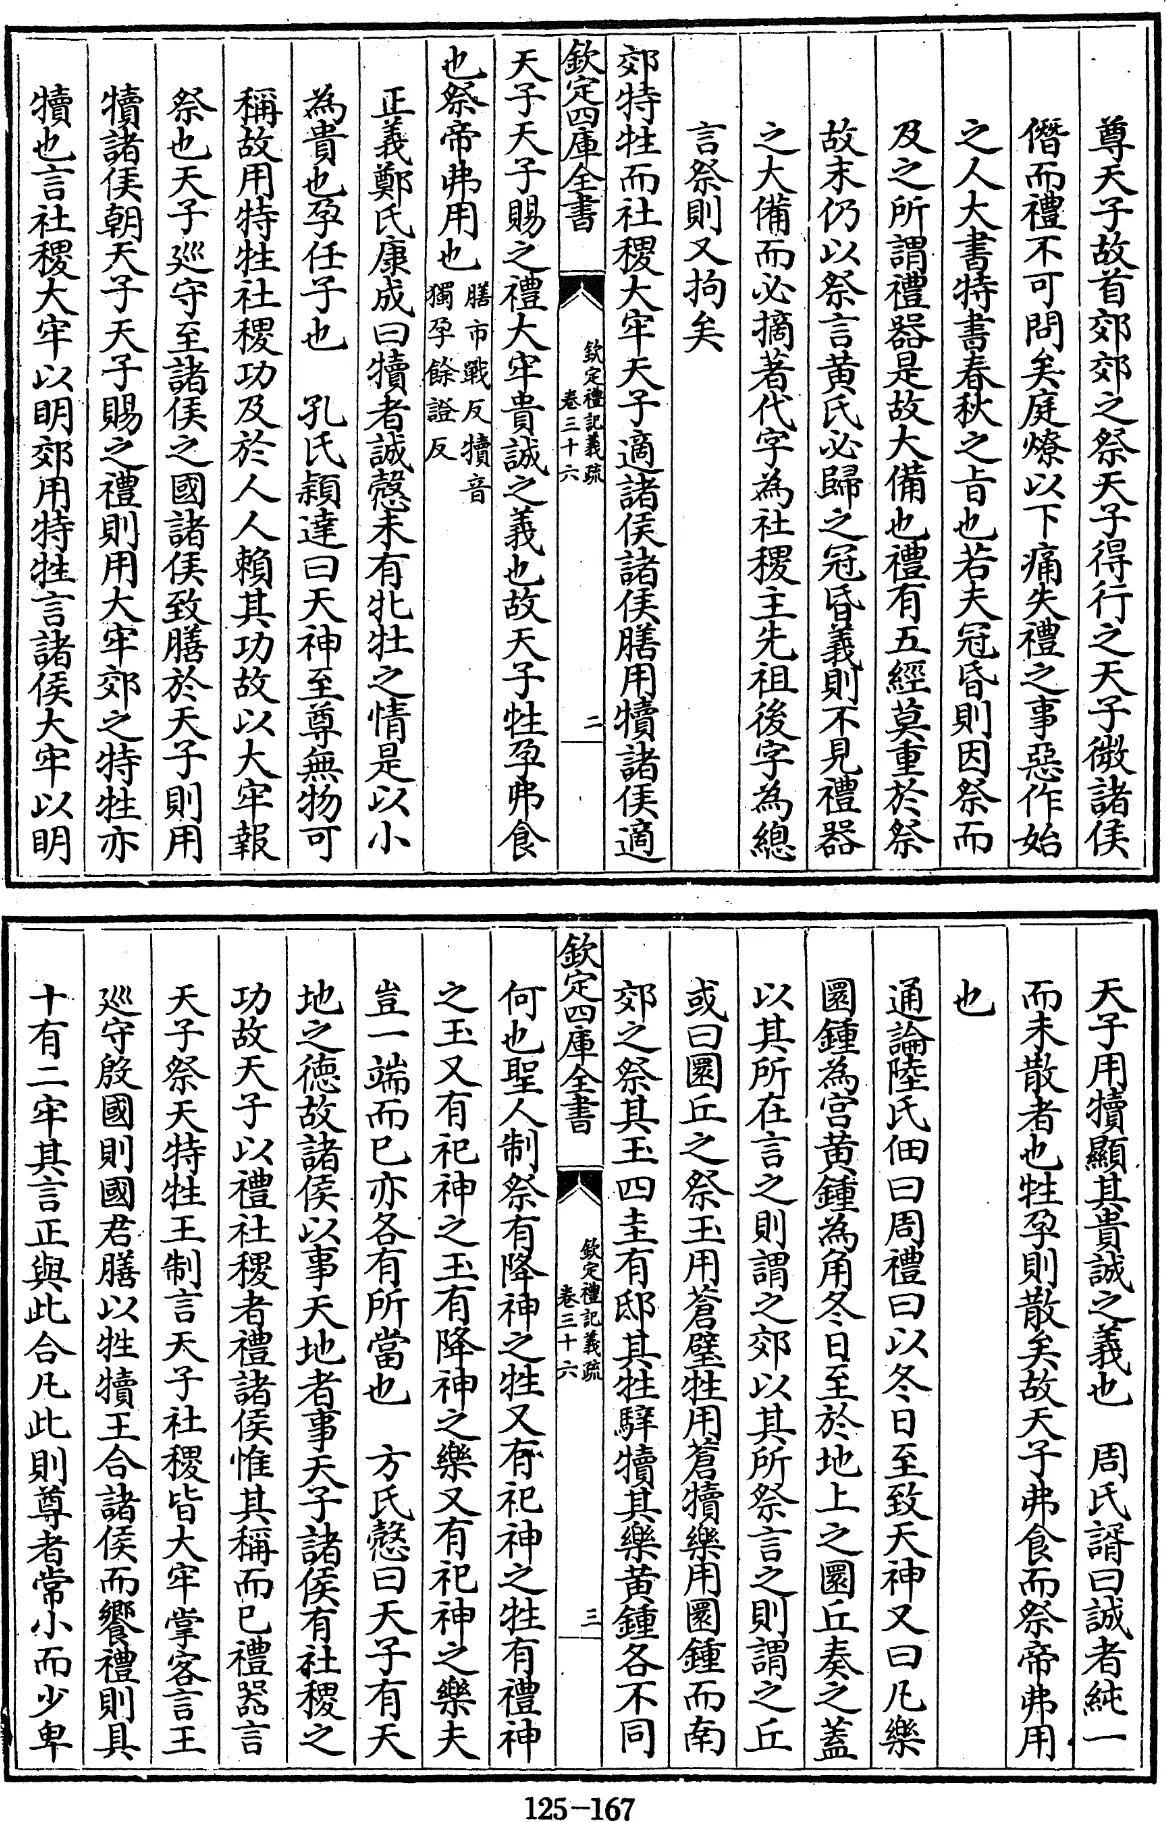 尊天子故首郊郊之祭天子得行之天子微諸侯
僭而禮不可問矣庭燎以下痛失禮之事惡作始
之人大書特書春秋之旨也若夫冠昏則因祭而
及之所謂禮器是故大備也禮有五經莫重於祭
故末仍以祭言黃氏必歸之冠昏義則不見禮器
之大備而必摘著代字為社稷主先祖後字為總
言祭則又拘矣
郊特牲而社稷大牢天子適諸侯諸侯膳用犢諸侯適
欽定四庫全書
欽定禮記義疏
卷三十六
二
天子天子賜之禮大牢貴誠之義也故天子牲孕弗食
也祭帝弗用也膳市戰反犢音
獨孕餘證反
正義鄭氏康成曰犢者誠慤未有牝牡之情是以小
為貴也孕任子也 孔氏穎達曰天神至尊無物可
稱故用特牲社稷功及於人人賴其功故以大牢報
祭也天子巡守至諸侯之國諸侯致膳於天子則用
犢諸侯朝天子天子賜之禮則用大牢郊之特牲亦
犢也言社稷大牢以明郊用特牲言諸侯大牢以明
天子用犢顯其貴誠之義也 周氏諝曰誠者純一
而未散者也牲孕則散矣故天子弗食而祭帝弗用
也
通論陸氏佃曰周禮曰以冬日至致天神又曰凡樂
圜鍾為宮黃鍾為角冬日至於地上之圜丘奏之蓋
以其所在言之則謂之郊以其所祭言之則謂之丘
或曰圜丘之祭玉用蒼璧牲用蒼犢樂用圜鍾而南
郊之祭其玉四圭有邸其牲騂犢其樂黃鍾各不同
欽定四庫全書
欽定禮記義疏
卷三十六
三
何也聖人制祭有降神之牲又有祀神之牲有禮神
之玉又有祀神之玉有降神之樂又有祀神之樂夫
豈一端而已亦各有所當也 方氏慤曰天子有天
地之德故諸侯以事天地者事天子諸侯有社稷之
功故天子以禮社稷者禮諸侯惟其稱而已禮器言
天子祭天特牲王制言天子社稷皆大牢掌客言王
巡守殷國則國君膳以牲犢王合諸侯而饗禮則具
十有二牢其言正與此合凡此則尊者常小而少卑
125-167